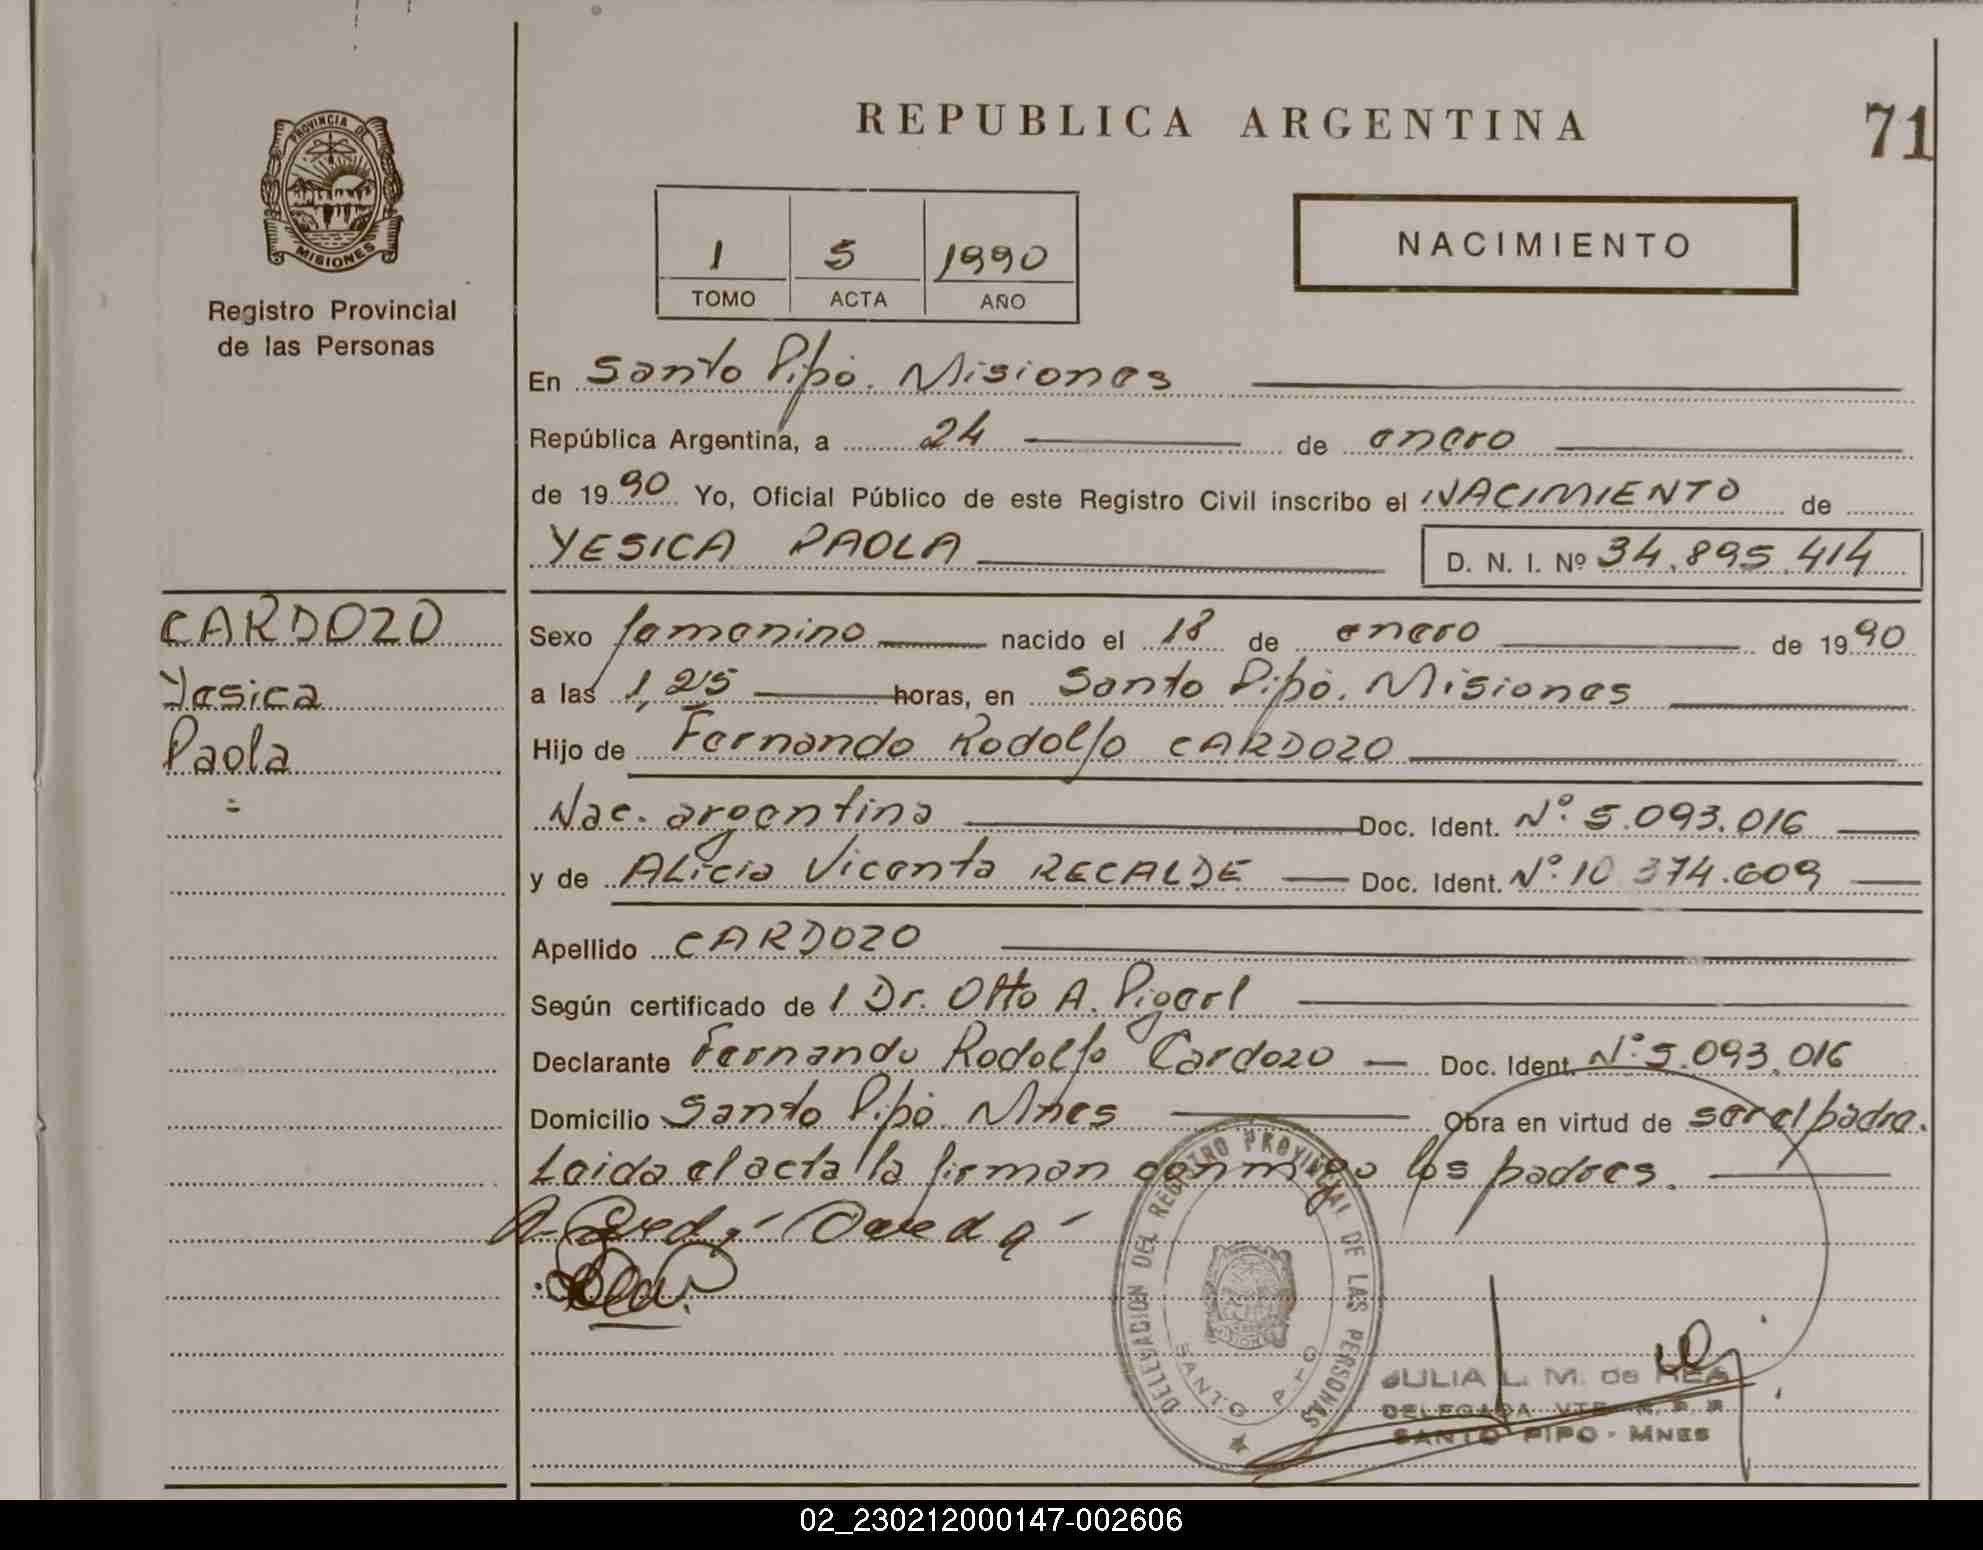 REPUBLICA ARGENTINA
71
PROVINCIA DE MISIONES
Registro Provincial
de las Personas
1 5 1990
TOMO ACTA AÑO
NACIMIENTO
En Santo Pipó. Misiones
República Argentina, a 24 de enero
de 1990 Yo, Oficial Público de este Registro Civil inscribo el NACIMIENTO de
YESICA PAOLA D. N. I. Nº 34.895.414
CARDOZO
Yesica
Paola
Sexo femenino nacido el 18 de enero de 1990
a las 1,25 horas, en Santo Pipó. Misiones
Hijo de Fernando Rodolfo CARDOZO
Nac. argentina Doc. Ident. Nº 5.093.016
y de ALicia Vicenta RECALDE Doc. Ident. Nº 10 374.609
Apellido CARDOZO
Según certificado de l Dr. Otto A.
Declarante Fernando Rodolfo Cardozo Doc. Ident. Nº 5.093.016
Domicilio Santo Pipó. Mnes Obra en virtud de ser el padre.
Leida el acta la firman conmigo los padres.
DELEGACION DEL REGISTRO PROVINCIAL DE LAS PERSONAS
SANTO PIPO
JULIA L. M. de REA
DELEGADA
SANTO PIPO - MNES
02_230212000147-002606